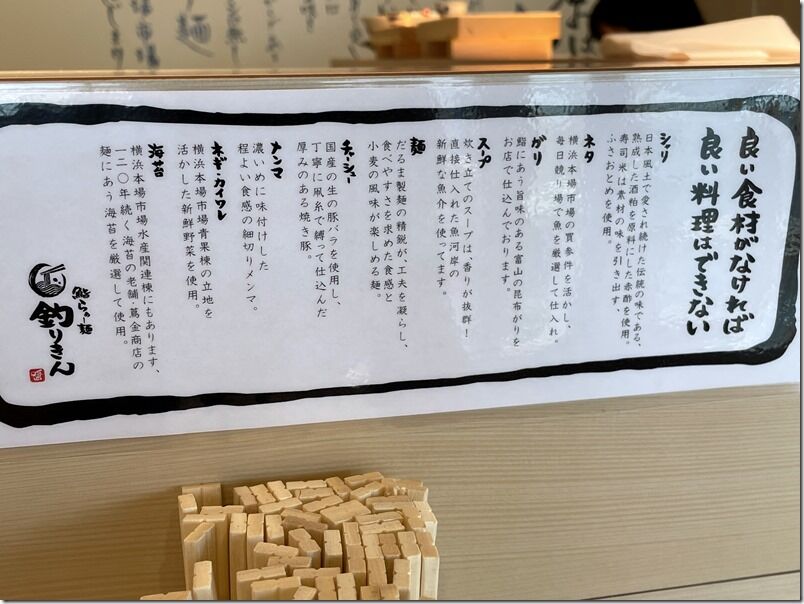 良い食材がなければ
良い料理はできない
シャリ
日本風土で愛され続けた伝統の味である、
熟成した酒粕を原料にした赤酢を使用。
寿司米は素材の味を引き出す、
ふさおとめを使用。
ネタ
横浜本場市場の買参件を活かし、
毎日競り場で魚を厳選して仕入れ。
がり
鮨にあう旨味のある富山の昆布がりを
お店で仕込んでおります。
スープ
炊き立てのスープは、香りが抜群！
直接仕入れた魚河岸の
新鮮な魚介を使ってます。
麺
だるま製麺の精鋭が、工夫を凝らし、
食べやすさを求めた食感と
小麦の風味が楽しめる麺。
チャーシュー
国産の生の豚バラを使用し、
丁寧に凧糸で縛って仕込んだ
厚みのある焼き豚。
メンマ
濃いめに味付けした
程よい食感の細切りメンマ。
ネギ・カイワレ
横浜本場市場青果棟の立地を
活かした新鮮野菜を使用。
海苔
横浜本場市場水産関連棟にもあります、
一二〇年続く海苔の老舗・蔦金商店の
麺にあう海苔を厳選して使用。
鮨らぁ麺
釣りきん